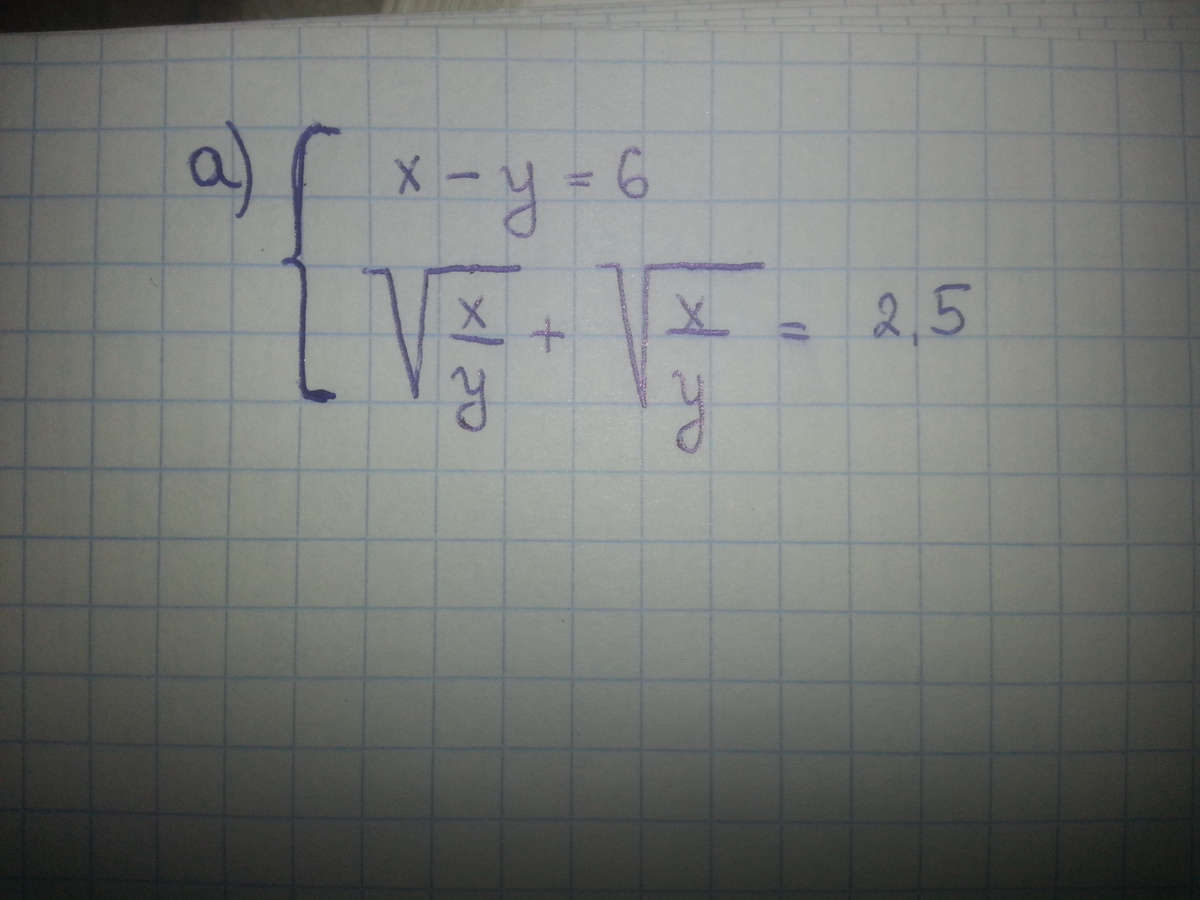 a) { x - y = 6
√(x/y) + √(x/y) = 2,5